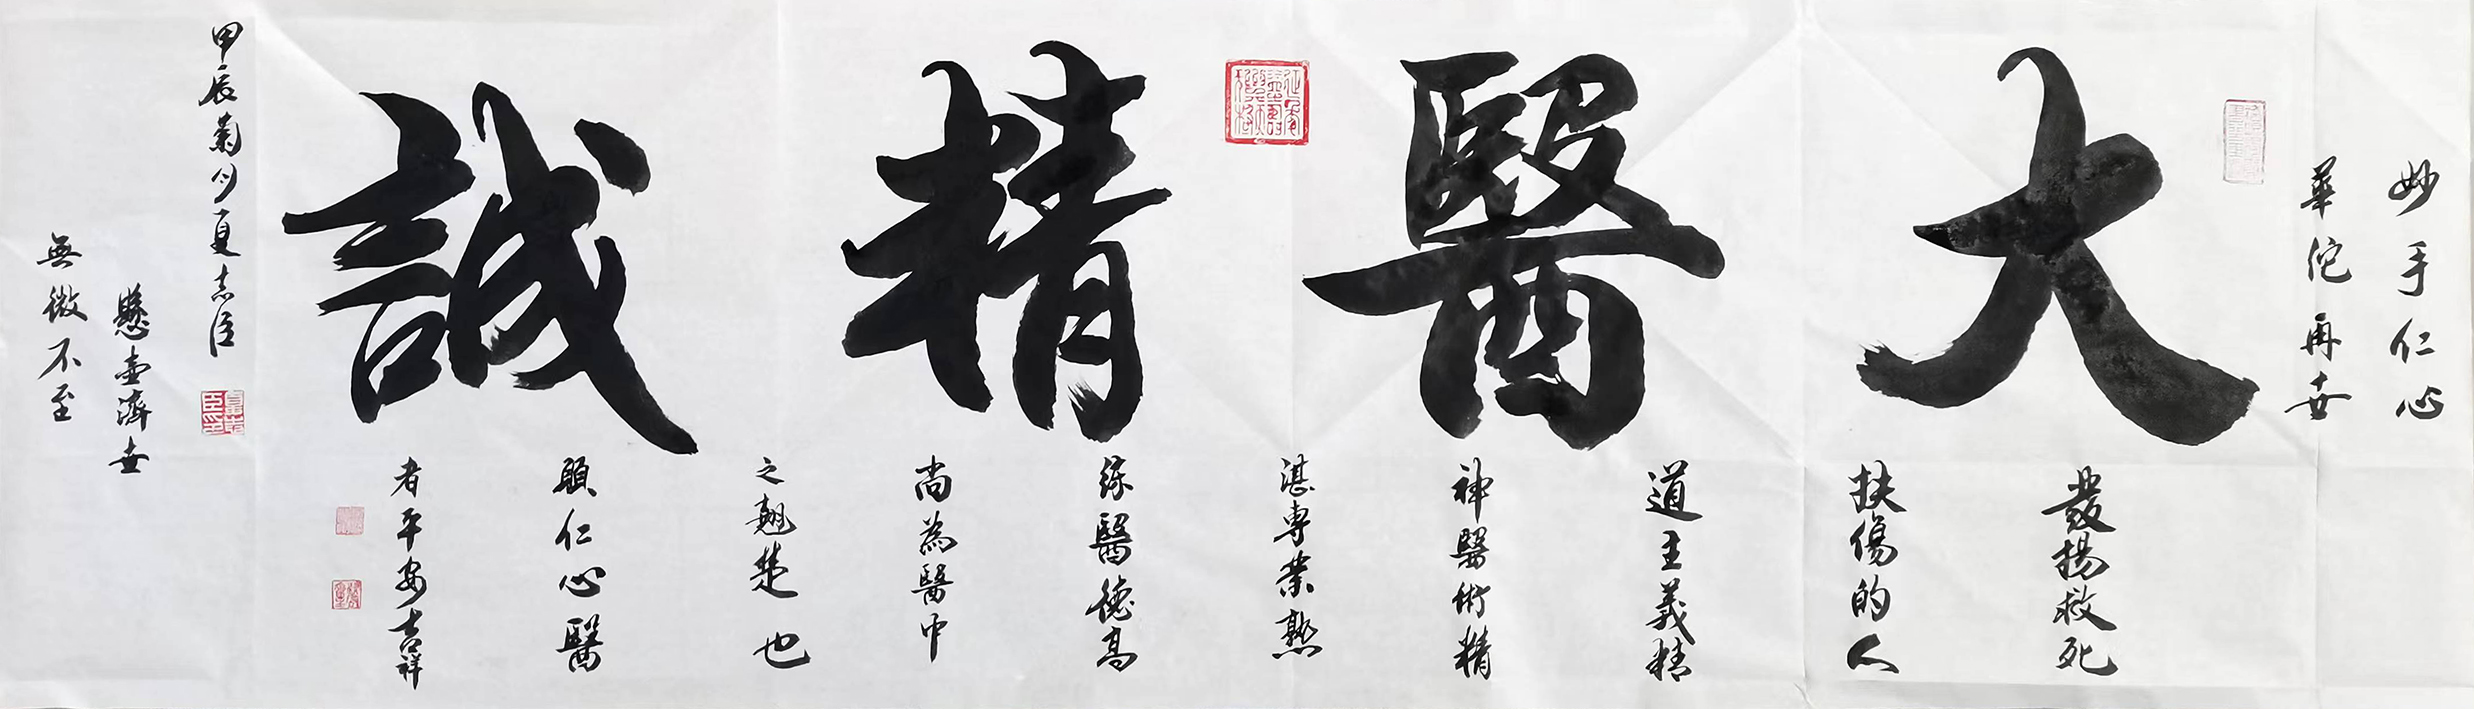 妙手仁心
華佗再世
大醫精誠
發揚救死
扶傷的人
道主義精
神醫術精
湛專業熟
练醫德高
尚為醫中
之翹楚也
願仁心醫
者平安吉祥
甲辰菊月夏志臣
懸壺濟世
無微不至